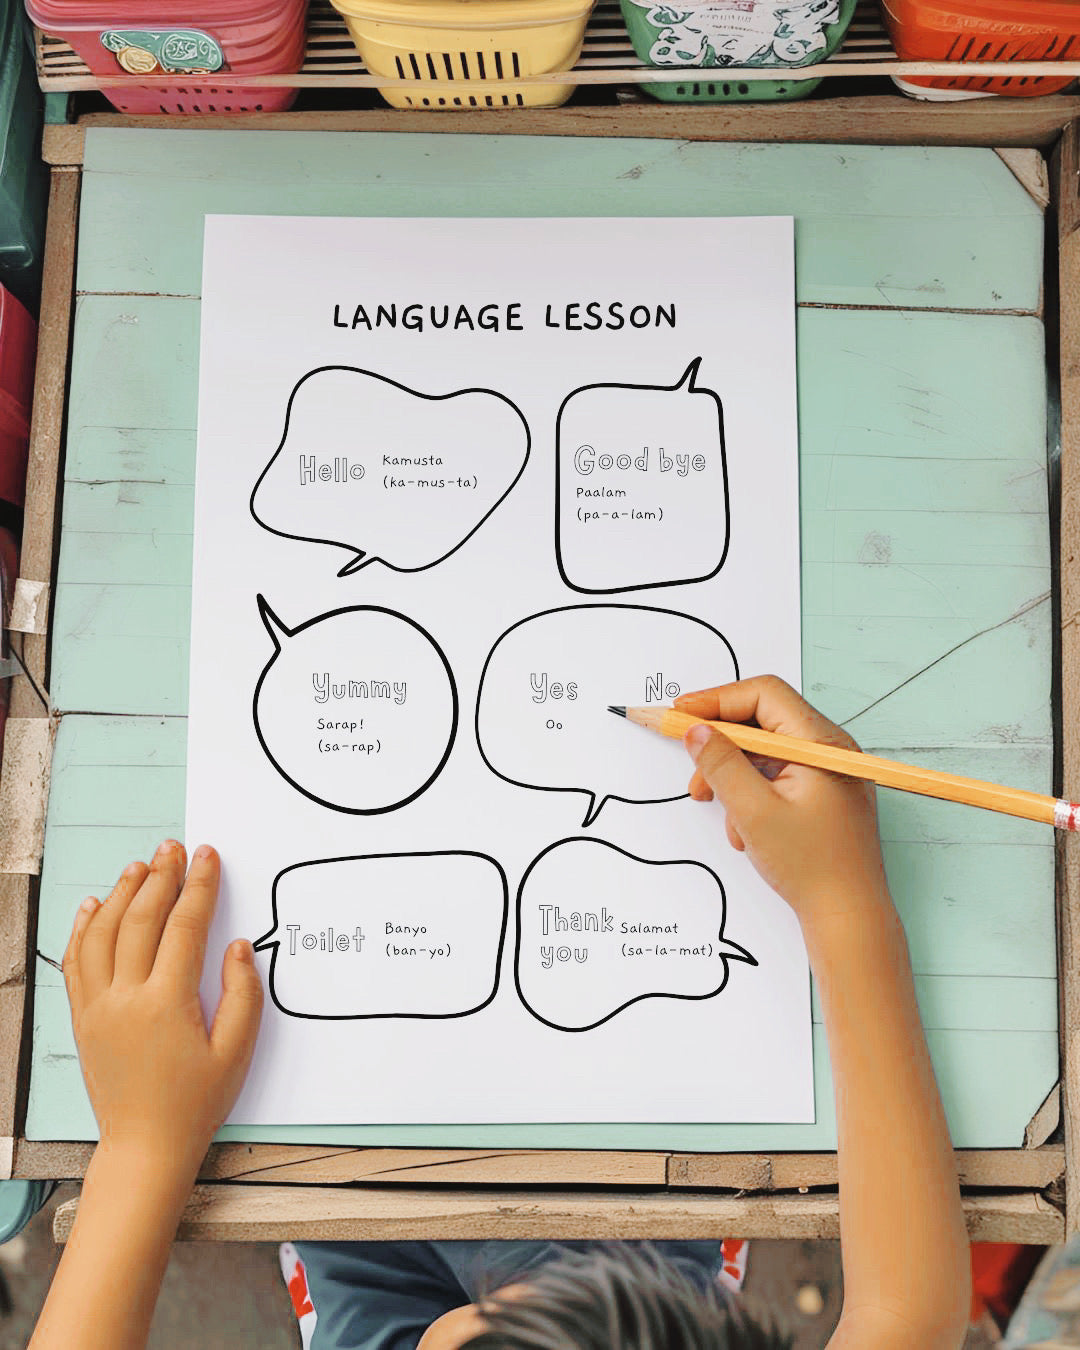 LANGUAGE LESSON
Hello
Kamusta
(ka-mus-ta)
Good bye
Paalam
(pa-a-lam)
Yummy
Sarap!
(sa-rap)
Yes
No
Oo
Toilet
Banyo
(ban-yo)
Thank
you
Salamat
(sa-la-mat)